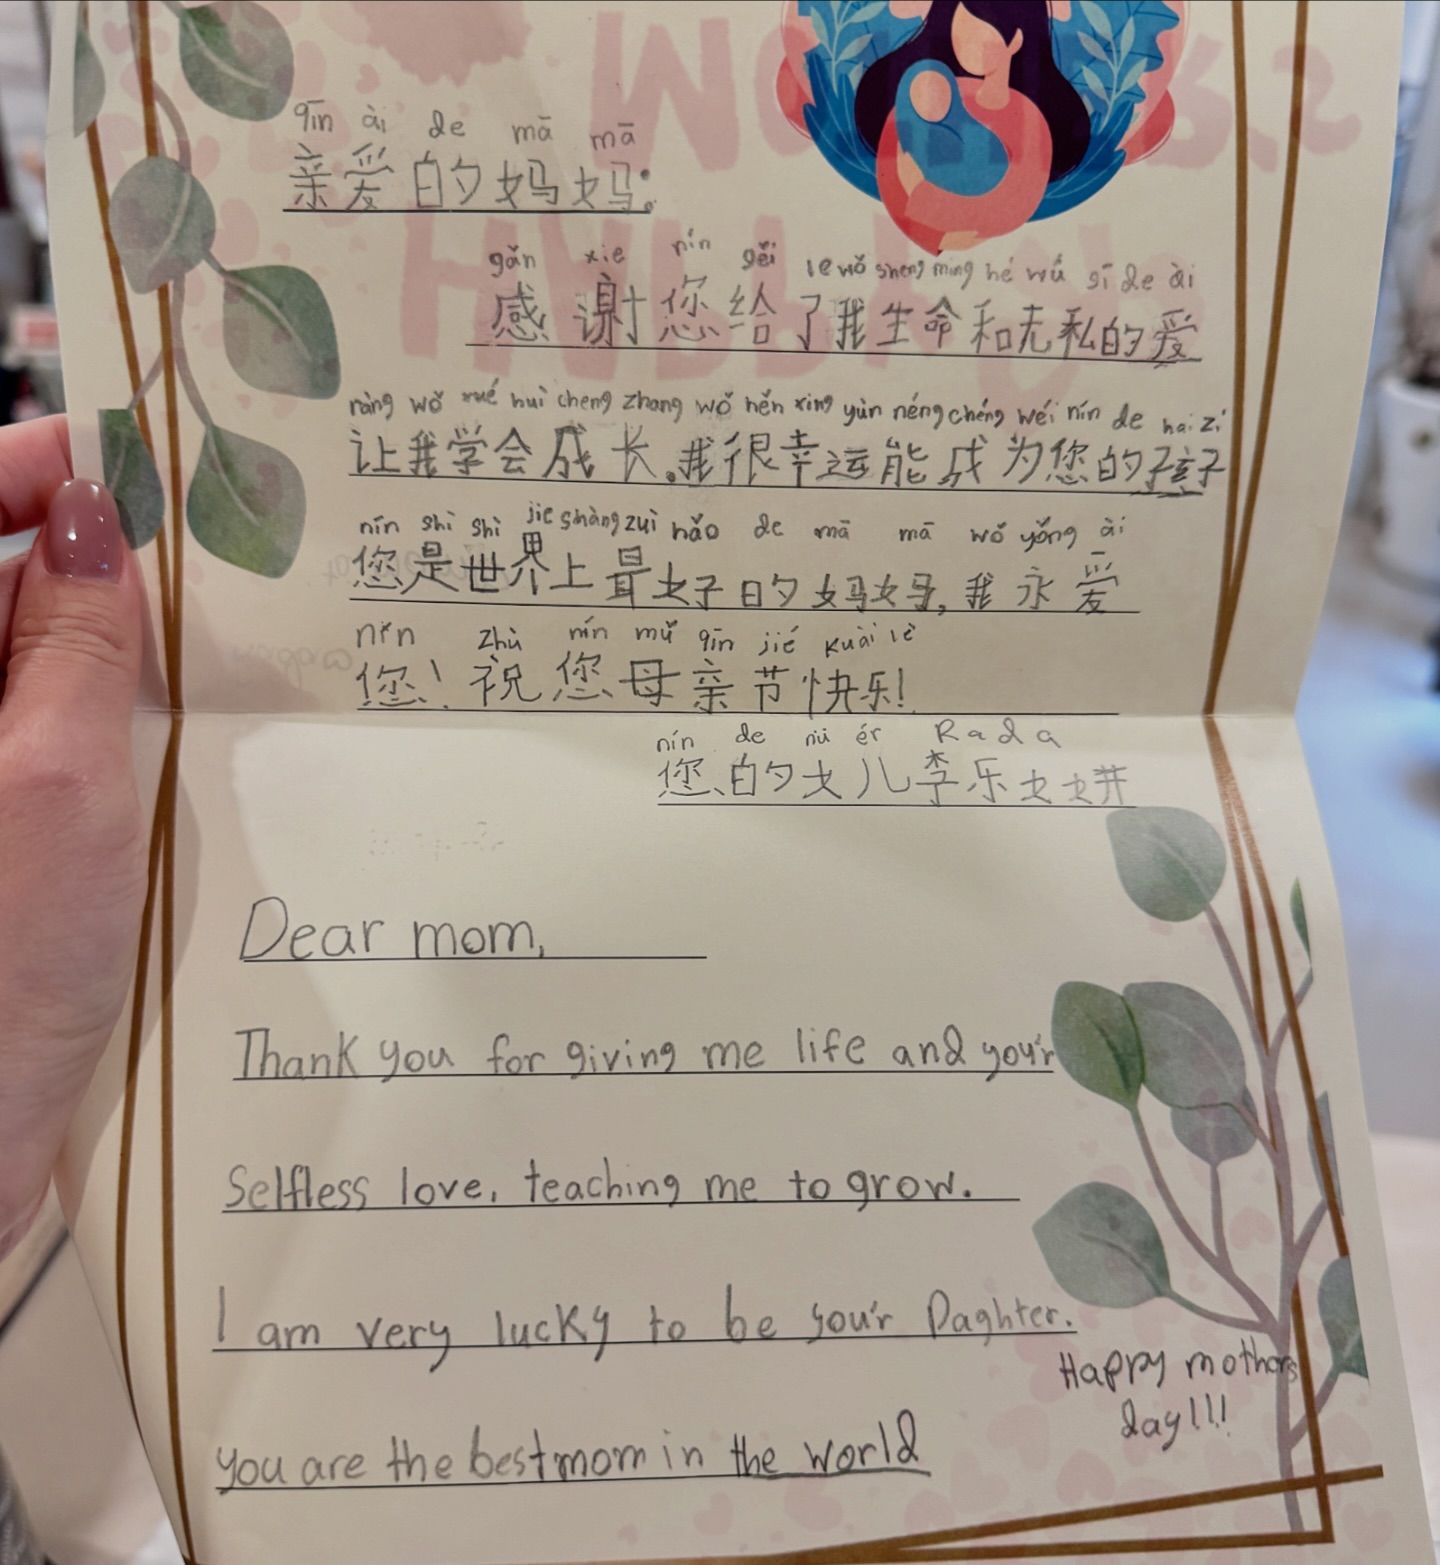 qīn ài de mā mā
亲爱的妈妈:
gǎn xie nín gěi le wǒ sheng ming hé wú sī de ài
感谢您给了我生命和无私的爱
ràng wǒ xué huì cheng zhang wǒ hěn xìng yùn néng chéng wéi nín de hai zi
让我学会成长。我很幸运能成为您的孩子
nín shì shì jie shàng zuì hǎo de mā mā wǒ yǒng ài
您是世界上最好的妈妈,我永爱
nín zhù nín mǔ qīn jié kuài lè
您!祝您母亲节快乐!
nín de nü ér Rada
您的女儿李乐
Dear mom,
Thank you for giving me life and you'r
Selfless love, teaching me to grow.
I am very lucky to be you'r Daghter.
Happy mothers
day!!!
you are the best mom in the world